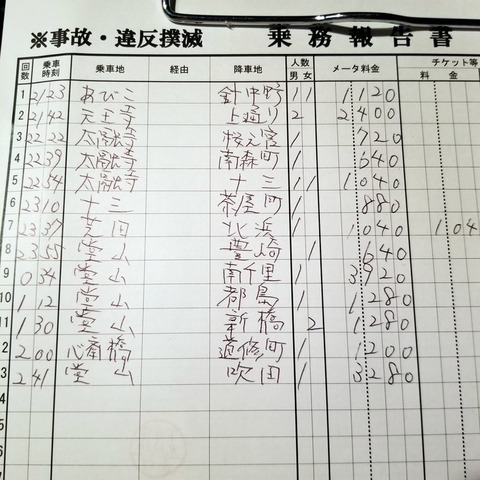 ※事故・違反撲滅 乗務報告書
回数 乗車時刻 乗車地 経由 降車地 人数 男 女 メータ料金 チケット等 料金
1 2123 あびこ 針中野 1 1 1120
2 2142 天王寺 上通り 2 2400
3 2222 太融寺 桜之宮 1 720
4 2239 太融寺 南森町 1 640
5 2254 太融寺 十三 1 1 1040
6 2310 十三 茶屋町 1 880
7 2337 芝田 北浜 1 1040 104
8 2355 堂山 豊崎 1 640
9 034 堂山 南千里 1 3920
10 112 堂山 都島 1 1280
11 130 堂山 新橋 2 1280
2 200 心斎橋 道修町 1 1200
3 241 堂山 吹田 1 3280
4
5
6
7